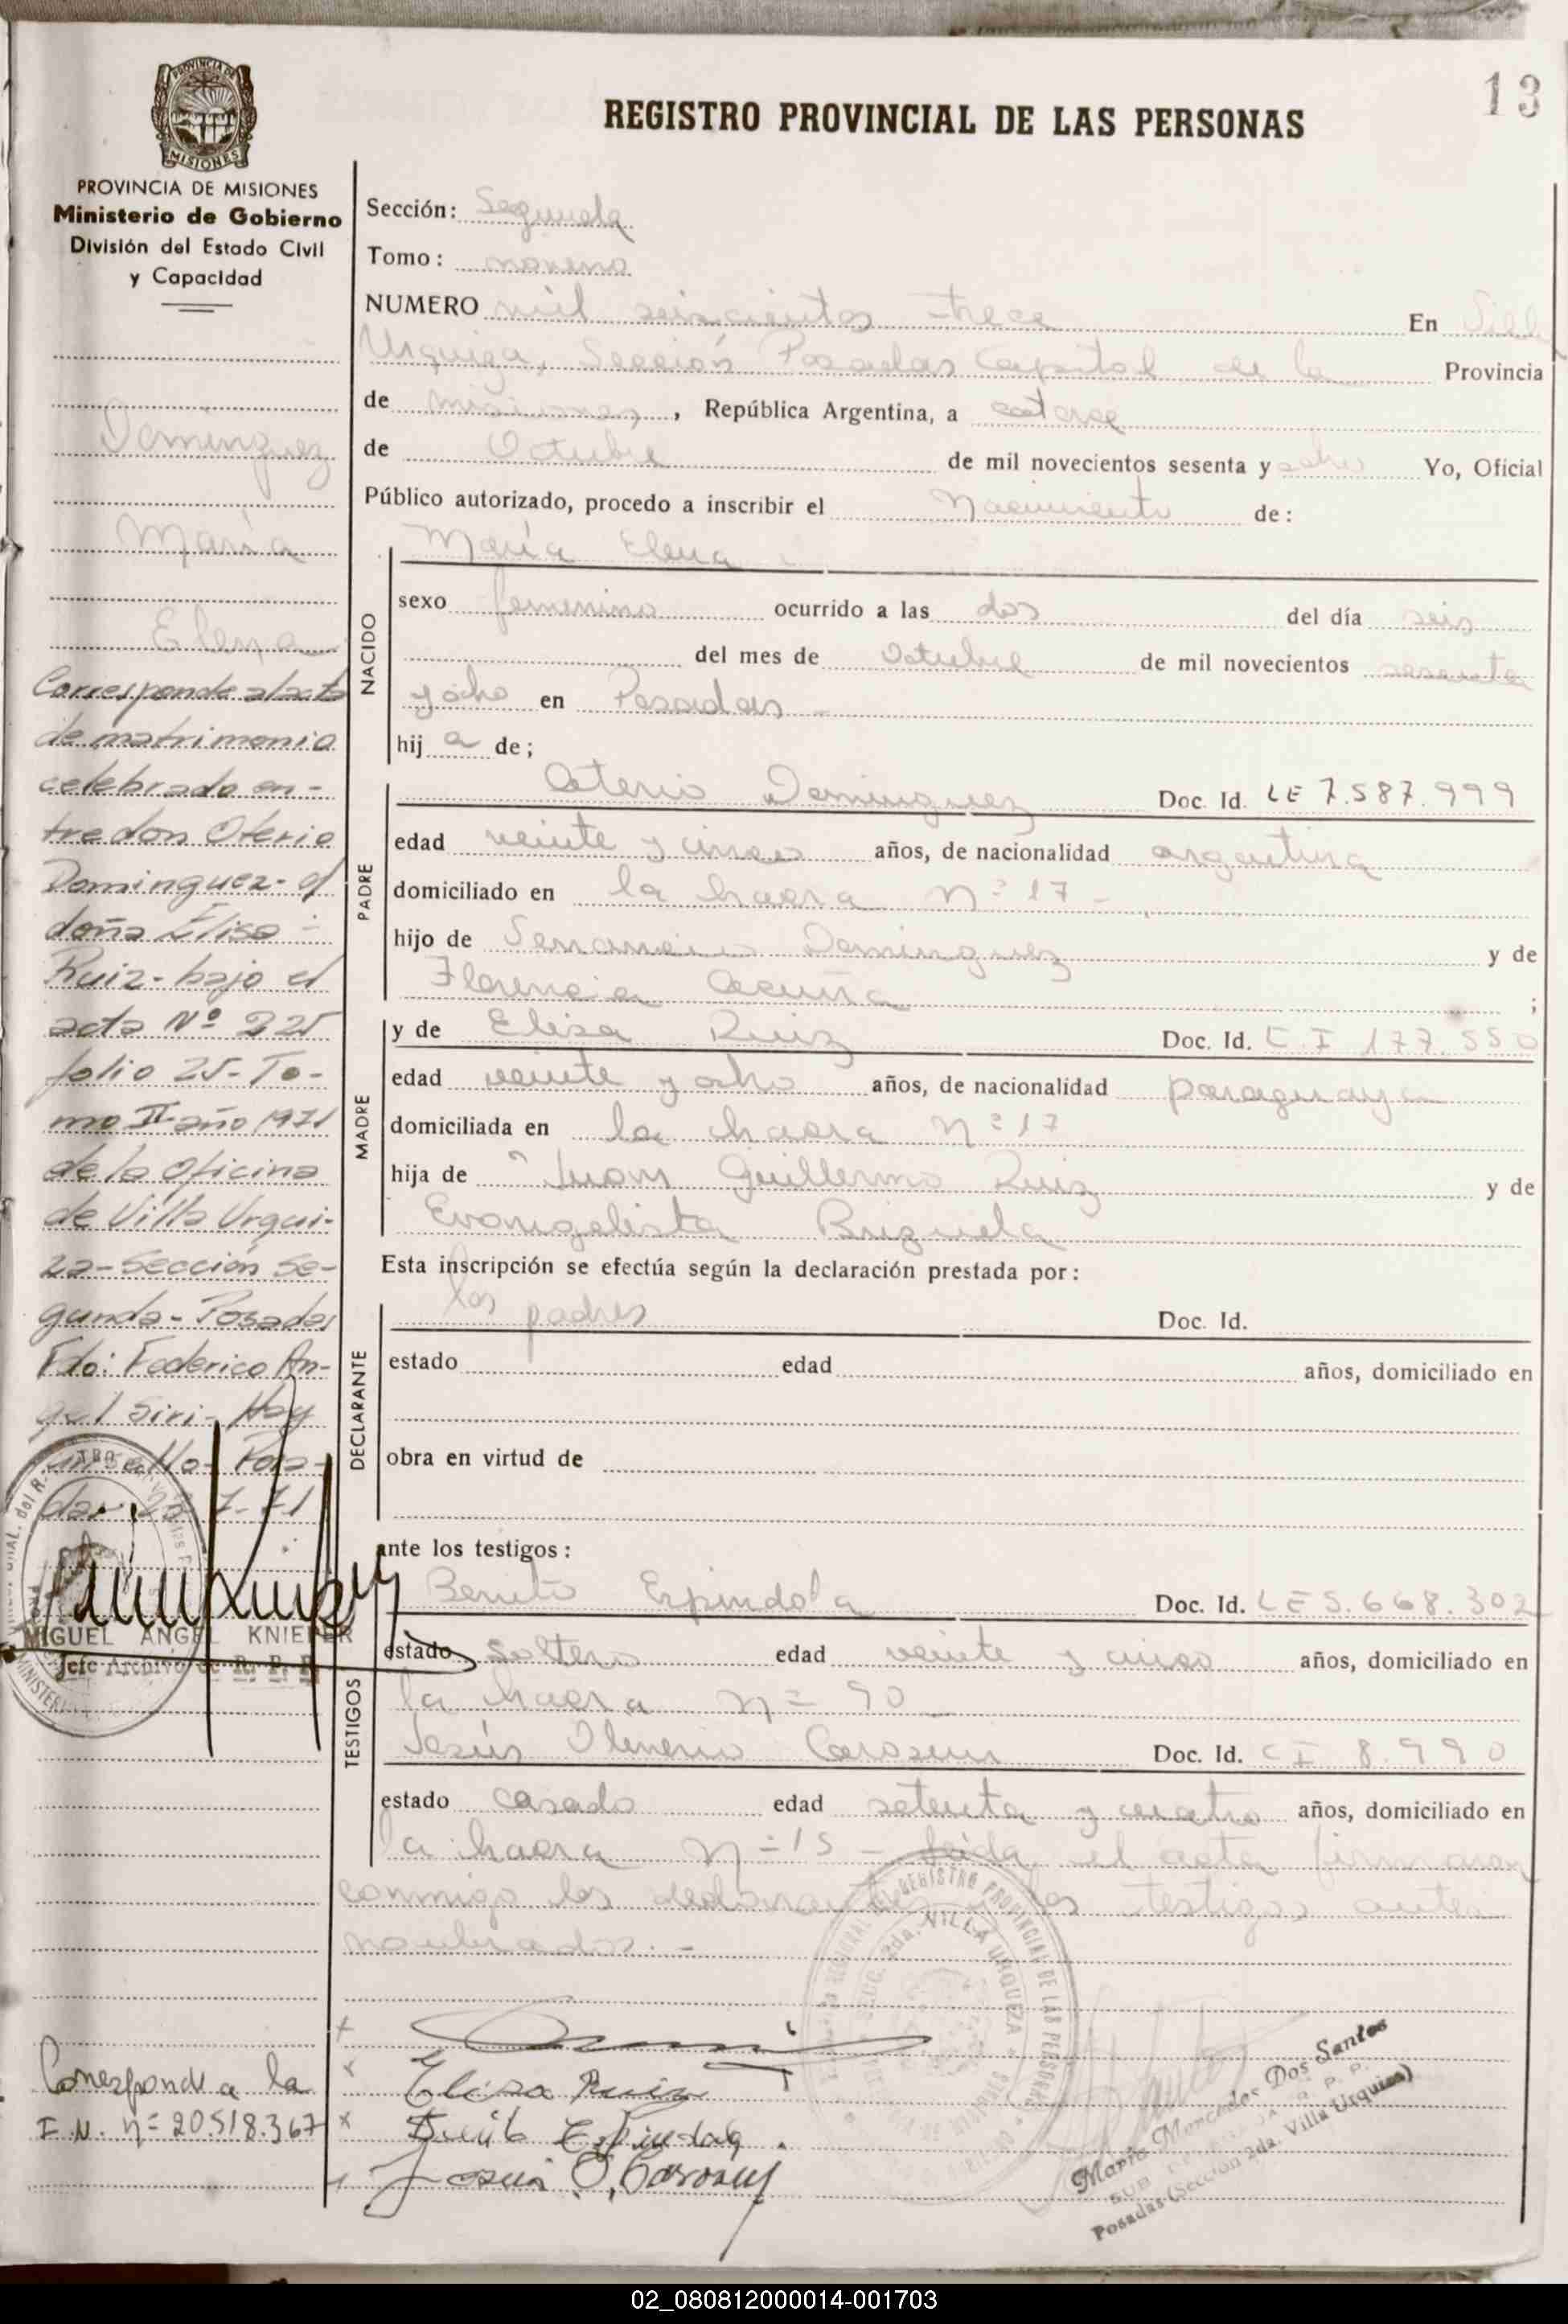 13
REGISTRO PROVINCIAL DE LAS PERSONAS
PROVINCIA DE
MISIONES
PROVINCIA DE MISIONES
Ministerio de Gobierno
División del Estado Civil
y Capacidad
Dominguez
María
Elena
Corresponde al acta
de matrimonio
celebrado en-
tre don Oterio
Dominguez- y
doña Elisa -
Ruiz- bajo el
acta Nº 225
folio 25- To-
mo II año 1971
de la oficina
de Villa Urqui-
za- Sección Se-
gunda- Posadas
Fdo: Federico An-
gel Siri- Hay
un sello- Posa-
das 7-71
MIGUEL ANGEL KNIEPER
Jefe Archivo de R. P. P.
Corresponde a la
I.N. nº 20.518.367
Sección: Segunda
Tomo: noveno
NUMERO mil seiscientos trece En Villa
Urquiza, Sección Posadas Capital de la Provincia
de Misiones, República Argentina, a catorce
de Octubre de mil novecientos sesenta y ocho Yo, Oficial
Público autorizado, procedo a inscribir el Nacimiento de:
María Elena
NACIDO
sexo femenino ocurrido a las dos del día seis
del mes de Octubre de mil novecientos sesenta
y ocho en Posadas -
hija de;
PADRE
Oterio Dominguez Doc. Id. LE 7.587.999
edad veinte y cinco años, de nacionalidad argentina
domiciliado en la chacra nº 17 -
hijo de Dominguez y de
Florencia Acuña ;
MADRE
y de Elisa Ruiz Doc. Id. C.I 177.550
edad veinte y ocho años, de nacionalidad paraguaya
domiciliada en la chacra nº 17
hija de Juan Guillermo Ruiz y de
Evangelista Brizuela
Esta inscripción se efectúa según la declaración prestada por:
DECLARANTE
los padres Doc. Id.
estado edad años, domiciliado en
obra en virtud de
ante los testigos:
TESTIGOS
Benito Espindola Doc. Id. LE 5.668.302
estado soltero edad veinte y cinco años, domiciliado en
la chacra nº 90
Jesús Doc. Id. CI 8.990
estado casado edad setenta y cuatro años, domiciliado en
la chacra nº 15 - leida el acta firmaron
conmigo los declarantes y los testigos antes
nombrados. -
Elisa Ruiz
Benito Espindola
VILLA URQUIZA
Mario Mercedes Dos Santos
Posadas (Sección 2da. Villa Urquiza)
02_080812000014-001703